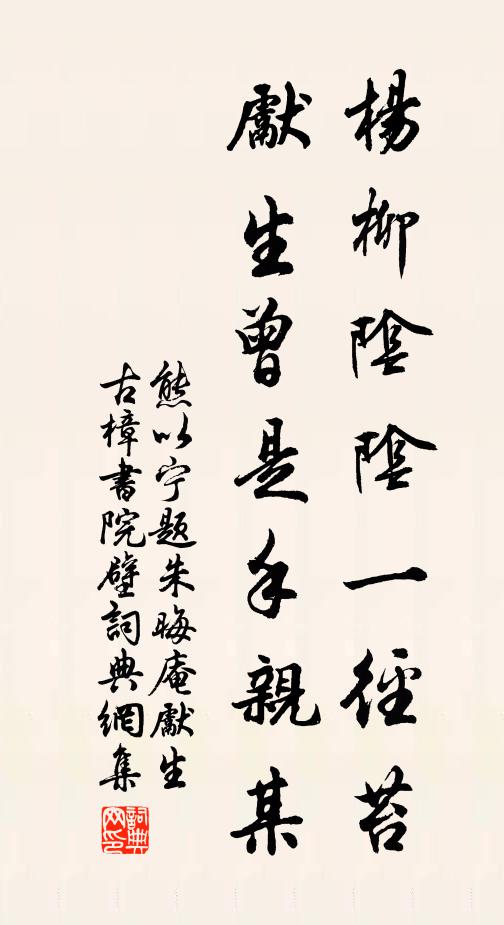 楊柳陰陰一徑苔
獻生曾是手親某
熊以宁題朱晦庵獻生
古樟書院壁詞典網集
詞典
网印